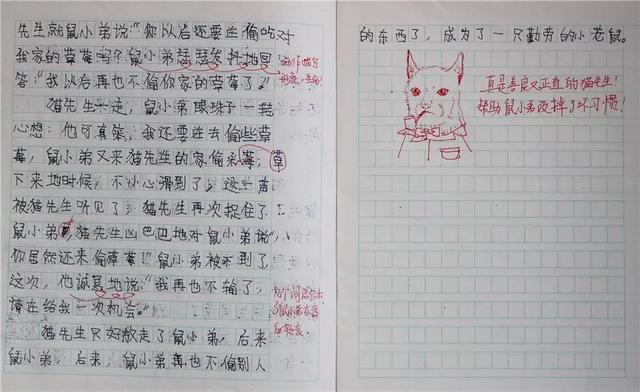 先生就鼠小弟说："你以后还要在偷吃对
我家的草莓吗？鼠小弟瑟瑟发抖地回
答："我以后再也不偷你家的草莓了。"
猫先生一走，鼠小弟眼珠子一转
心想：他可真笨，我还要在去偷些草
莓，鼠小弟又来猫先生的家偷采莓草
下来地时候，不小心滑到了，这一声
被猫先生听见了，猫先生再次捉住了
鼠小弟，猫先生凶巴巴地对鼠小弟说"
你居然还来偷草莓！"鼠小弟被吓到了
这次，他诚恳地说："我再也不输了，
请在给我一次机会。"
猫先生只好放走了鼠小弟，后来
鼠小弟，后来，鼠小弟再也不偷别人
的东西了，成为了一只勤劳的小老鼠。
真是善良又正直的猫先生！
帮助鼠小弟改掉了坏习惯！